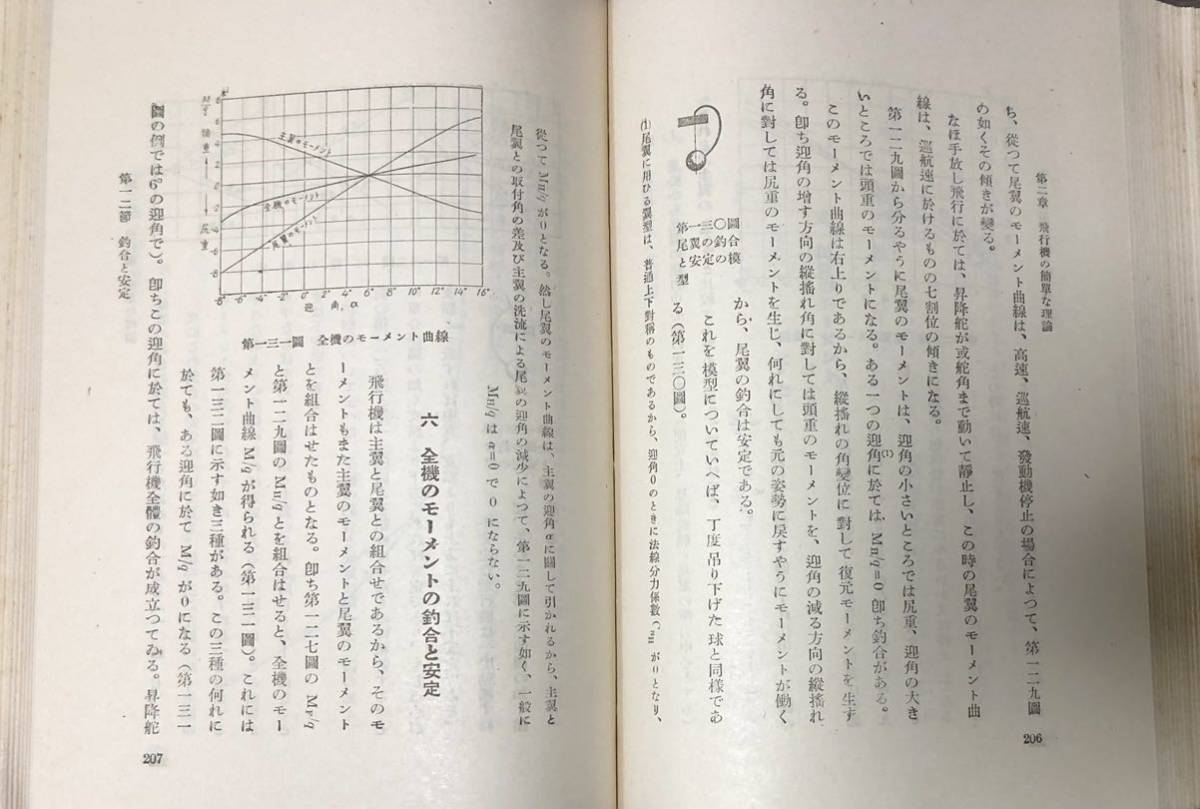 第二章 飛行機の簡單な理論
ち、從つて尾翼のモーメント曲線は、高速、巡航速、發動機停止の場合によつて、第一二九圖
の如くその傾きが變る。
なほ手放し飛行に於ては、昇降舵が或舵角まで動いて靜止し、この時の尾翼のモーメント曲
線は、巡航速に於けるものの七割位の傾きになる。
第一二九圖から分るやうに尾翼のモーメントは、迎角の小さいところでは尻重、迎角の大き
いところでは頭重のモーメントになる。ある一つの迎角(1)に於ては、Mₕ/q=0 卽ち釣合がある。
このモーメント曲線は右上りであるから、縱搖れの角變位に對して 復元モーメントを生す
る。卽ち迎角の增す方向の縱搖れ角に對しては頭重のモーメントを、迎角の減る方向の縱搖れ
角に對しては尻重のモーメントを生じ、何れにしても元の姿勢に戾すやうにモーメントが働く
から、尾翼の釣合は安定である。
これを模型についていへば、丁度吊り下げた球と同樣であ
る(第一三〇圖)。
第一三〇圖
尾翼の釣合
と安定の模
型
(1) 尾翼に用ひる翼型は、普通上下對稱のものであるから、迎角 0 のときに法線分力係數 が 0 となり、
206
從つて Mₕ/q が 0 となる。然し尾翼のモーメント曲線は、主翼の迎角 α に關して引かれるから、主翼と
尾翼との取付角の差及び主翼の洗流による尾翼の迎角の減少によつて、第一二九圖に示す如く、一般に
Mₕ/q は α=0 で 0 にならない。
六 全機のモーメントの釣合と安定
飛行機は主翼と尾翼との組合せであるから、そのモ
ーメントもまた主翼のモーメントと尾翼のモーメント
とを組合はせたものとなる。卽ち第一二七圖の Mₚ/q
と第一二九圖の Mₕ/q とを組合はせると、全機のモー
メント曲線 M/q が得られる(第一三一圖)。これには
第一三二圖に示す如き三種がある。この三種の何れに
於ても、ある迎角に於て M/q が 0 になる(第一三一
主翼のモーメント
全機のモーメント
尾翼のモーメント
頭重
尻重
8
6
4
2
0
-2
-4
-6
-8
-8° -6° -4° -2° 0° 2° 4° 6° 8° 10° 12° 14° 16°
迎 角, α
第一三一圖 全機のモーメント曲線
圖の例では 6° の迎角で)。卽ちこの迎角に於ては、飛行機全體の釣合が成立つてゐる。昇降舵
第一二節 釣合と安定
207